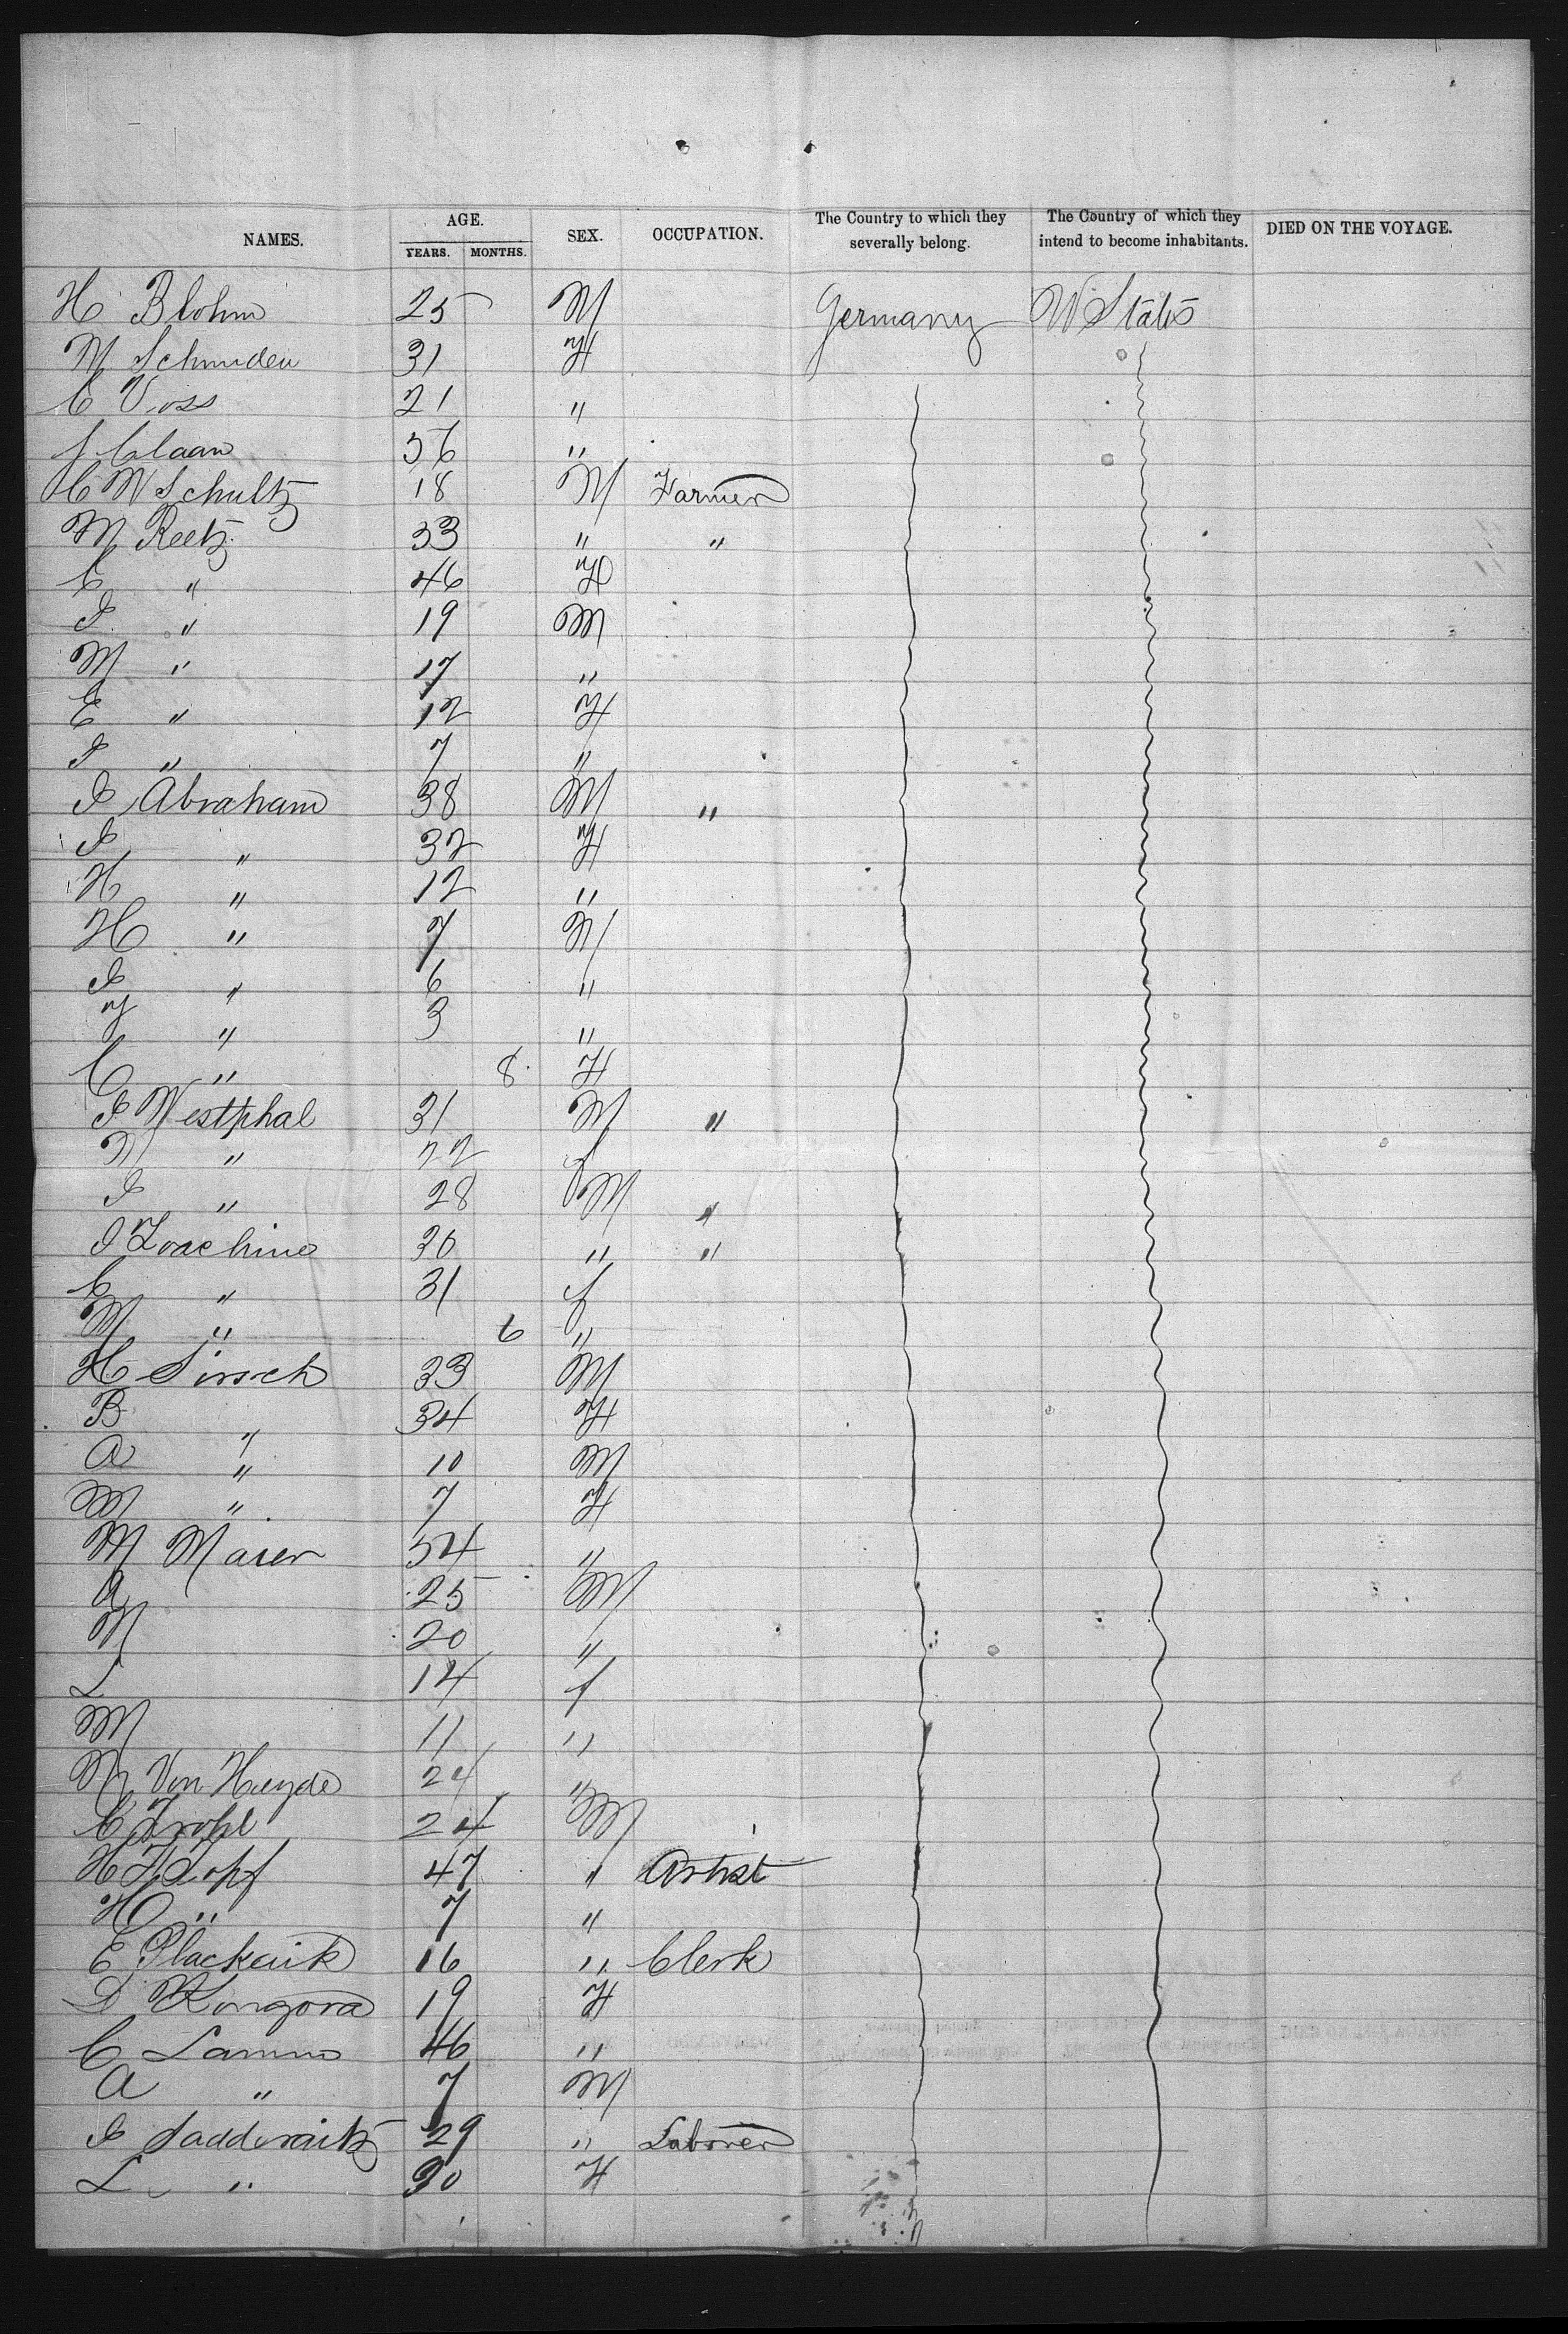 NAMES. AGE. YEARS. MONTHS. SEX. OCCUPATION. The Country to which they severally belong. The Country of which they intend to become inhabitants. DIED ON THE VOYAGE.
H Blohm 25 M Germany U States
M 31 F
C Voss 21 "
J Claan 56 "
C W Schultz 18 M Farmer
M Reetz 33 " "
C " 46 F
J " 19 M
M " 17 "
E " 12 F
J " 7 "
J Abraham 38 M "
J " 32 F
H " 12 "
H " 7 M
J " 6 "
F " 3 "
C " 8 F
J Westphal 31 M "
" 22 f
J " 28 M "
J 30 " "
C " 31 f
M " 6 "
H 33 M
B " 34 F
A " 10 M
M " 7 F
M Maier 54 "
A 25 M
M 20 "
L 14 f
M 11 "
M Von Heyde 24 "
C Frohl 24 M
H F Zopf 47 " Artist
H " 7 "
E 16 " Clerk
D Kongora 19 F
C Lamm 46 "
A " 7 M
J 29 " Laborer
L " 30 F